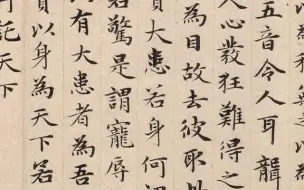 五音令人耳聾
人心發狂難得之
為目故去彼取此
貴大患若身何謂
若驚是謂寵辱
有大患者為吾
貴以身為天下若
託天下